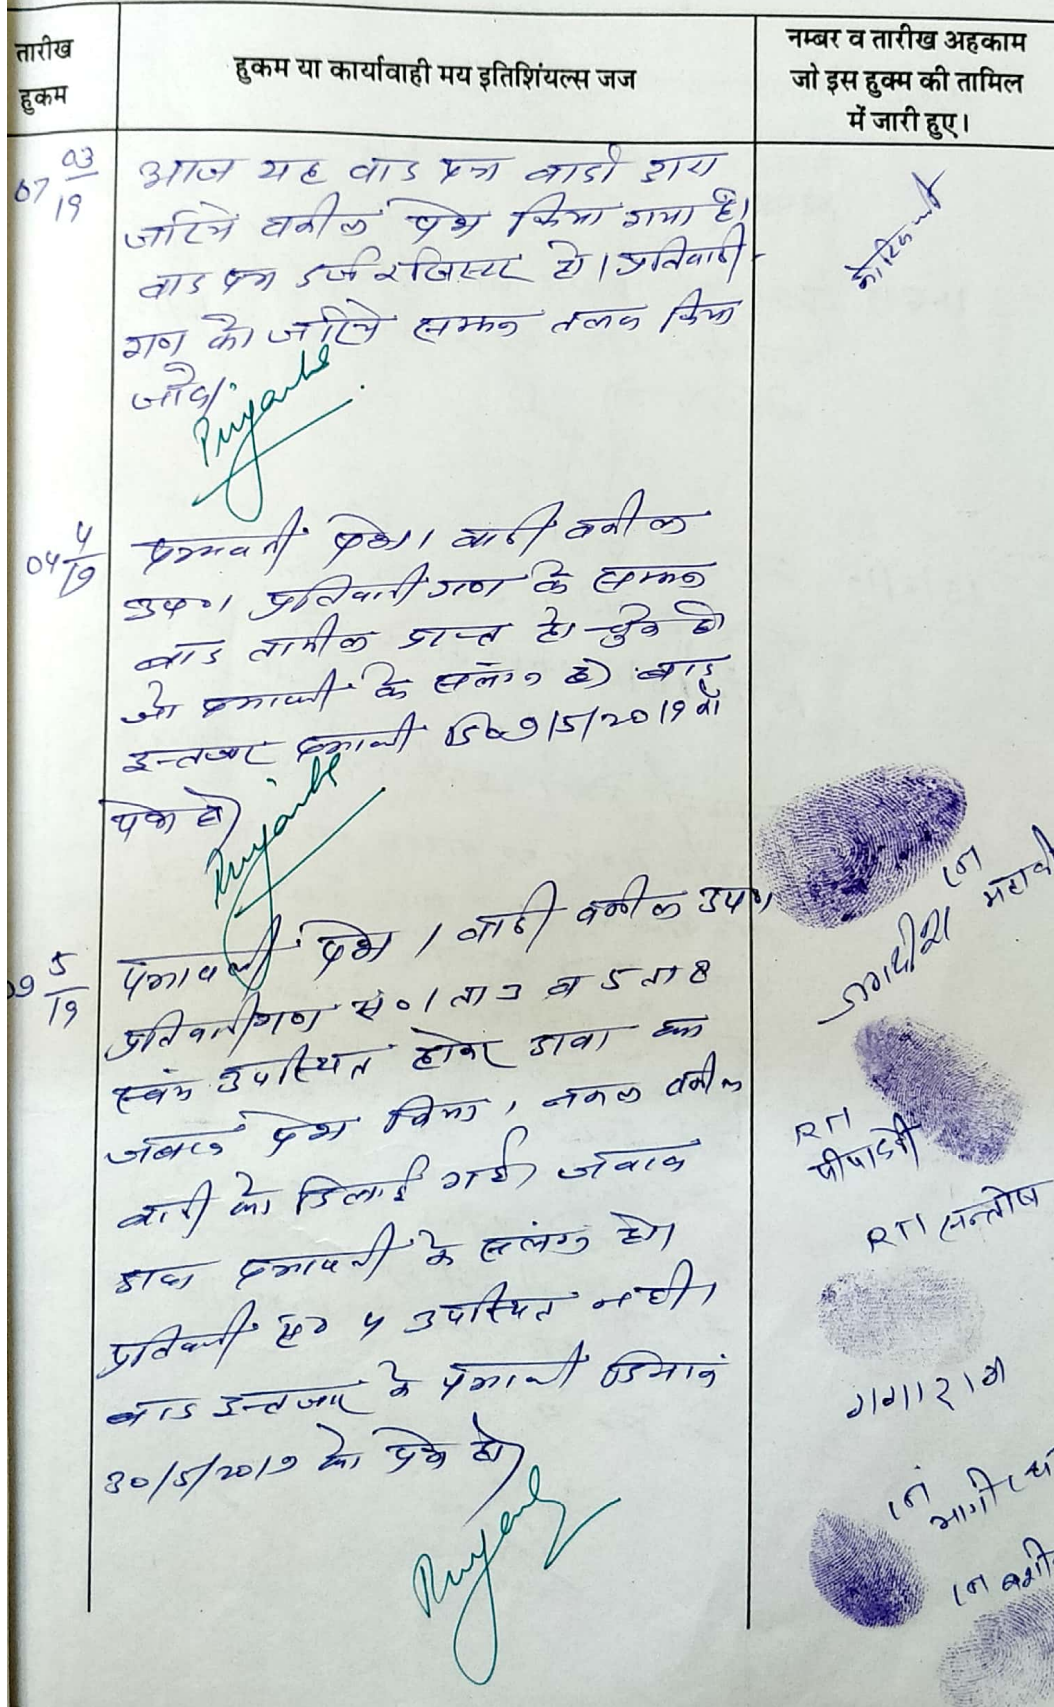 तारीख
हुकम
हुकम या कार्यावाही मय इतिशिंयल्स जज
नम्बर व तारीख अहकाम
जो इस हुक्म की तामिल
में जारी हुए।
07 03/19
आज यह वाद पत्र वादी द्वारा
जरिये वकील पेश किया गया है।
वाद पत्र दर्ज रजिस्टर हो। प्रतिवादी
गण को जरिये सम्मन तलब किया
जावे।
04 4/19
पत्रावली पेश। वादी वकील
उप०। प्रतिवादीगण के सम्मन
बाद तामील प्राप्त हो चुके है
जो पत्रावली के संलग्न है। बाद
इन्तजार पत्रावली दि० 9/5/2019 को
पेश हो।
09 5/19
पत्रावली पेश। वादी वकील उप०
प्रतिवादीगण सं० 1 ता 3 व 5 ता 8
स्वंय उपस्थित होकर दावा का
जवाब पेश किया, नकल वकील
वादी को दिलाई गई। जवाब
दावा पत्रावली के संलग्न है।
प्रतिवादी सं० 4 उपस्थित नही।
बाद इन्तजार के पत्रावली दिनांक
30/5/2019 को पेश हो।
RTI
RTI सन्तोष
गंगाराम